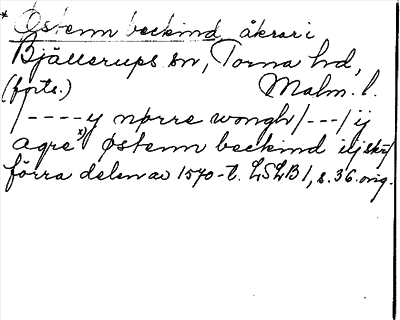 * Østenn beckind, åkrar i
Bjällerups sn, Torna hd,
(forts.) Malm. l.
/----y nørre wongh/---/ij
agre x) østenn beckind iij sk
förra delen av 1570-t. LSLB 1, s. 36. orig.